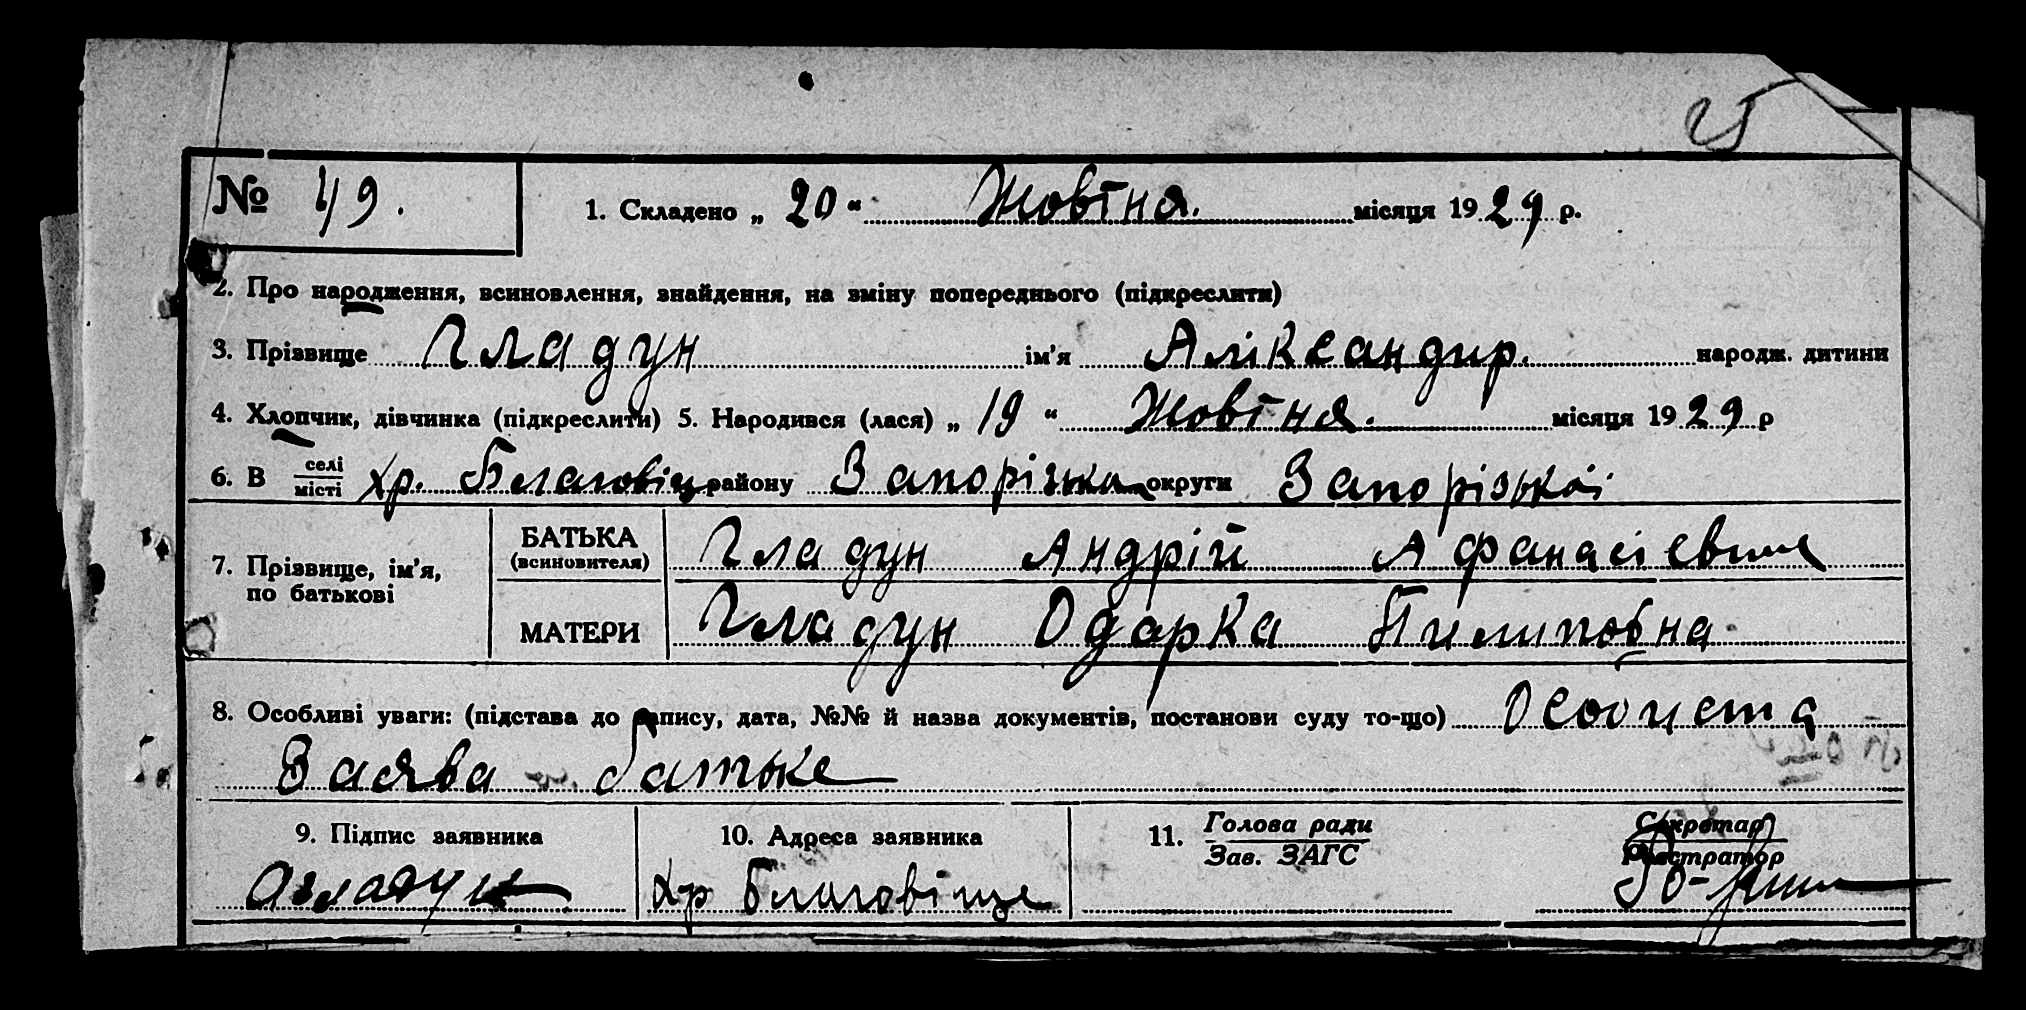 № 49. 1. Складено „ 20 “ Жовтня. місяця 1929 р.
2. Про народження, всиновлення, знайдення, на зміну попереднього (підкреслити)
3. Прізвище Гладун ім’я Аліксандир. народж. дитини
4. Хлопчик, дівчинка (підкреслити) 5. Народився (лася) „ 19 “ Жовтня. місяця 1929 р
6. В селі/місті хр. Благовіщ району Запорізька округи Запорізької
7. Прізвище, ім’я, по батькові
БАТЬКА (всиновителя) Гладун Андрій Афанасієвич
МАТЕРИ Гладун Одарка Пилиповна
8. Особливі уваги: (підстава до запису, дата, №№ й назва документів, постанови суду то-що) Особиста
Заява батька
9. Підпис заявника 10. Адреса заявника 11. Голова ради/Зав. ЗАГС Секретар/Реєстратор
Гладун хр Благовіще